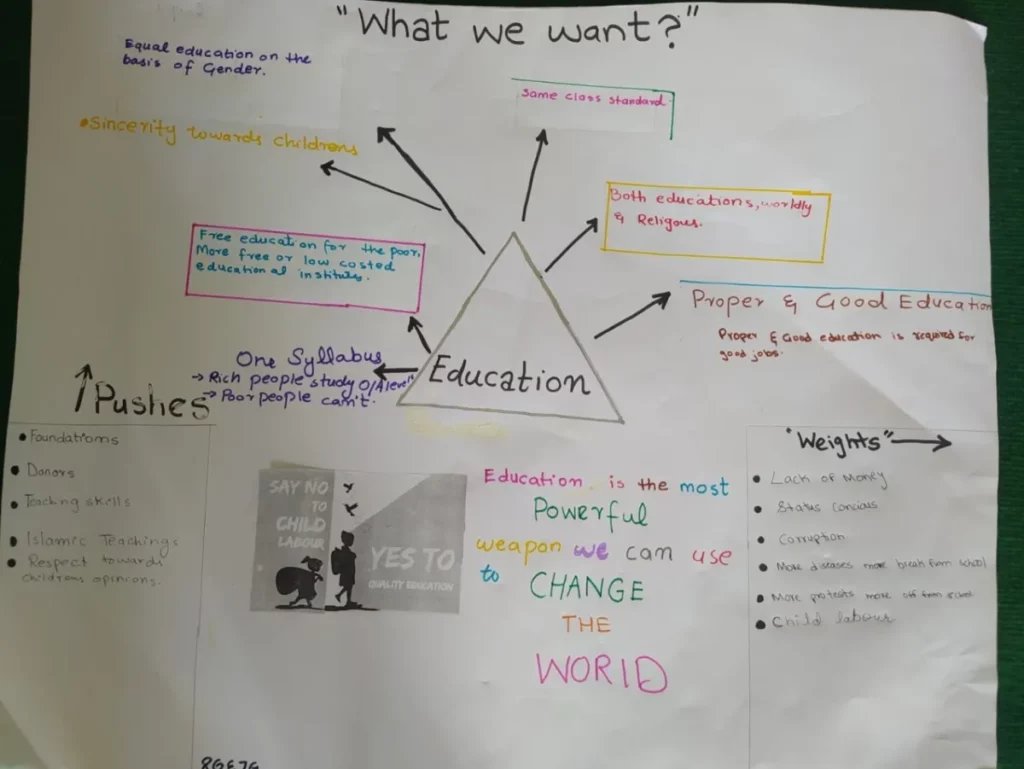 "What we want?"
Equal education on the
basis of Gender.
Same class standard
•Sincerity towards childrens
Both educations, worldly
& Religous.
Free education for the poor,
More free or low costed
educational institutes.
Proper & Good Education
Proper & Good education is required for
good jobs.
One Syllabus
→ Rich people study O/A level
→ Poor people can't.
Education
↑ Pushes
• Foundations
• Donors
• Teaching skills
• Islamic Teachings
• Respect towards
childrens opinions.
SAY NO
TO
CHILD
LABOUR
YES TO
QUALITY EDUCATION
Education is the most
Powerful
weapon we can use
to CHANGE
THE
WORlD
"Weights" →
• Lack of Money
• Status Concious
• Corruption
• More diseases more break from school
• More protests more off from school
• Child labour